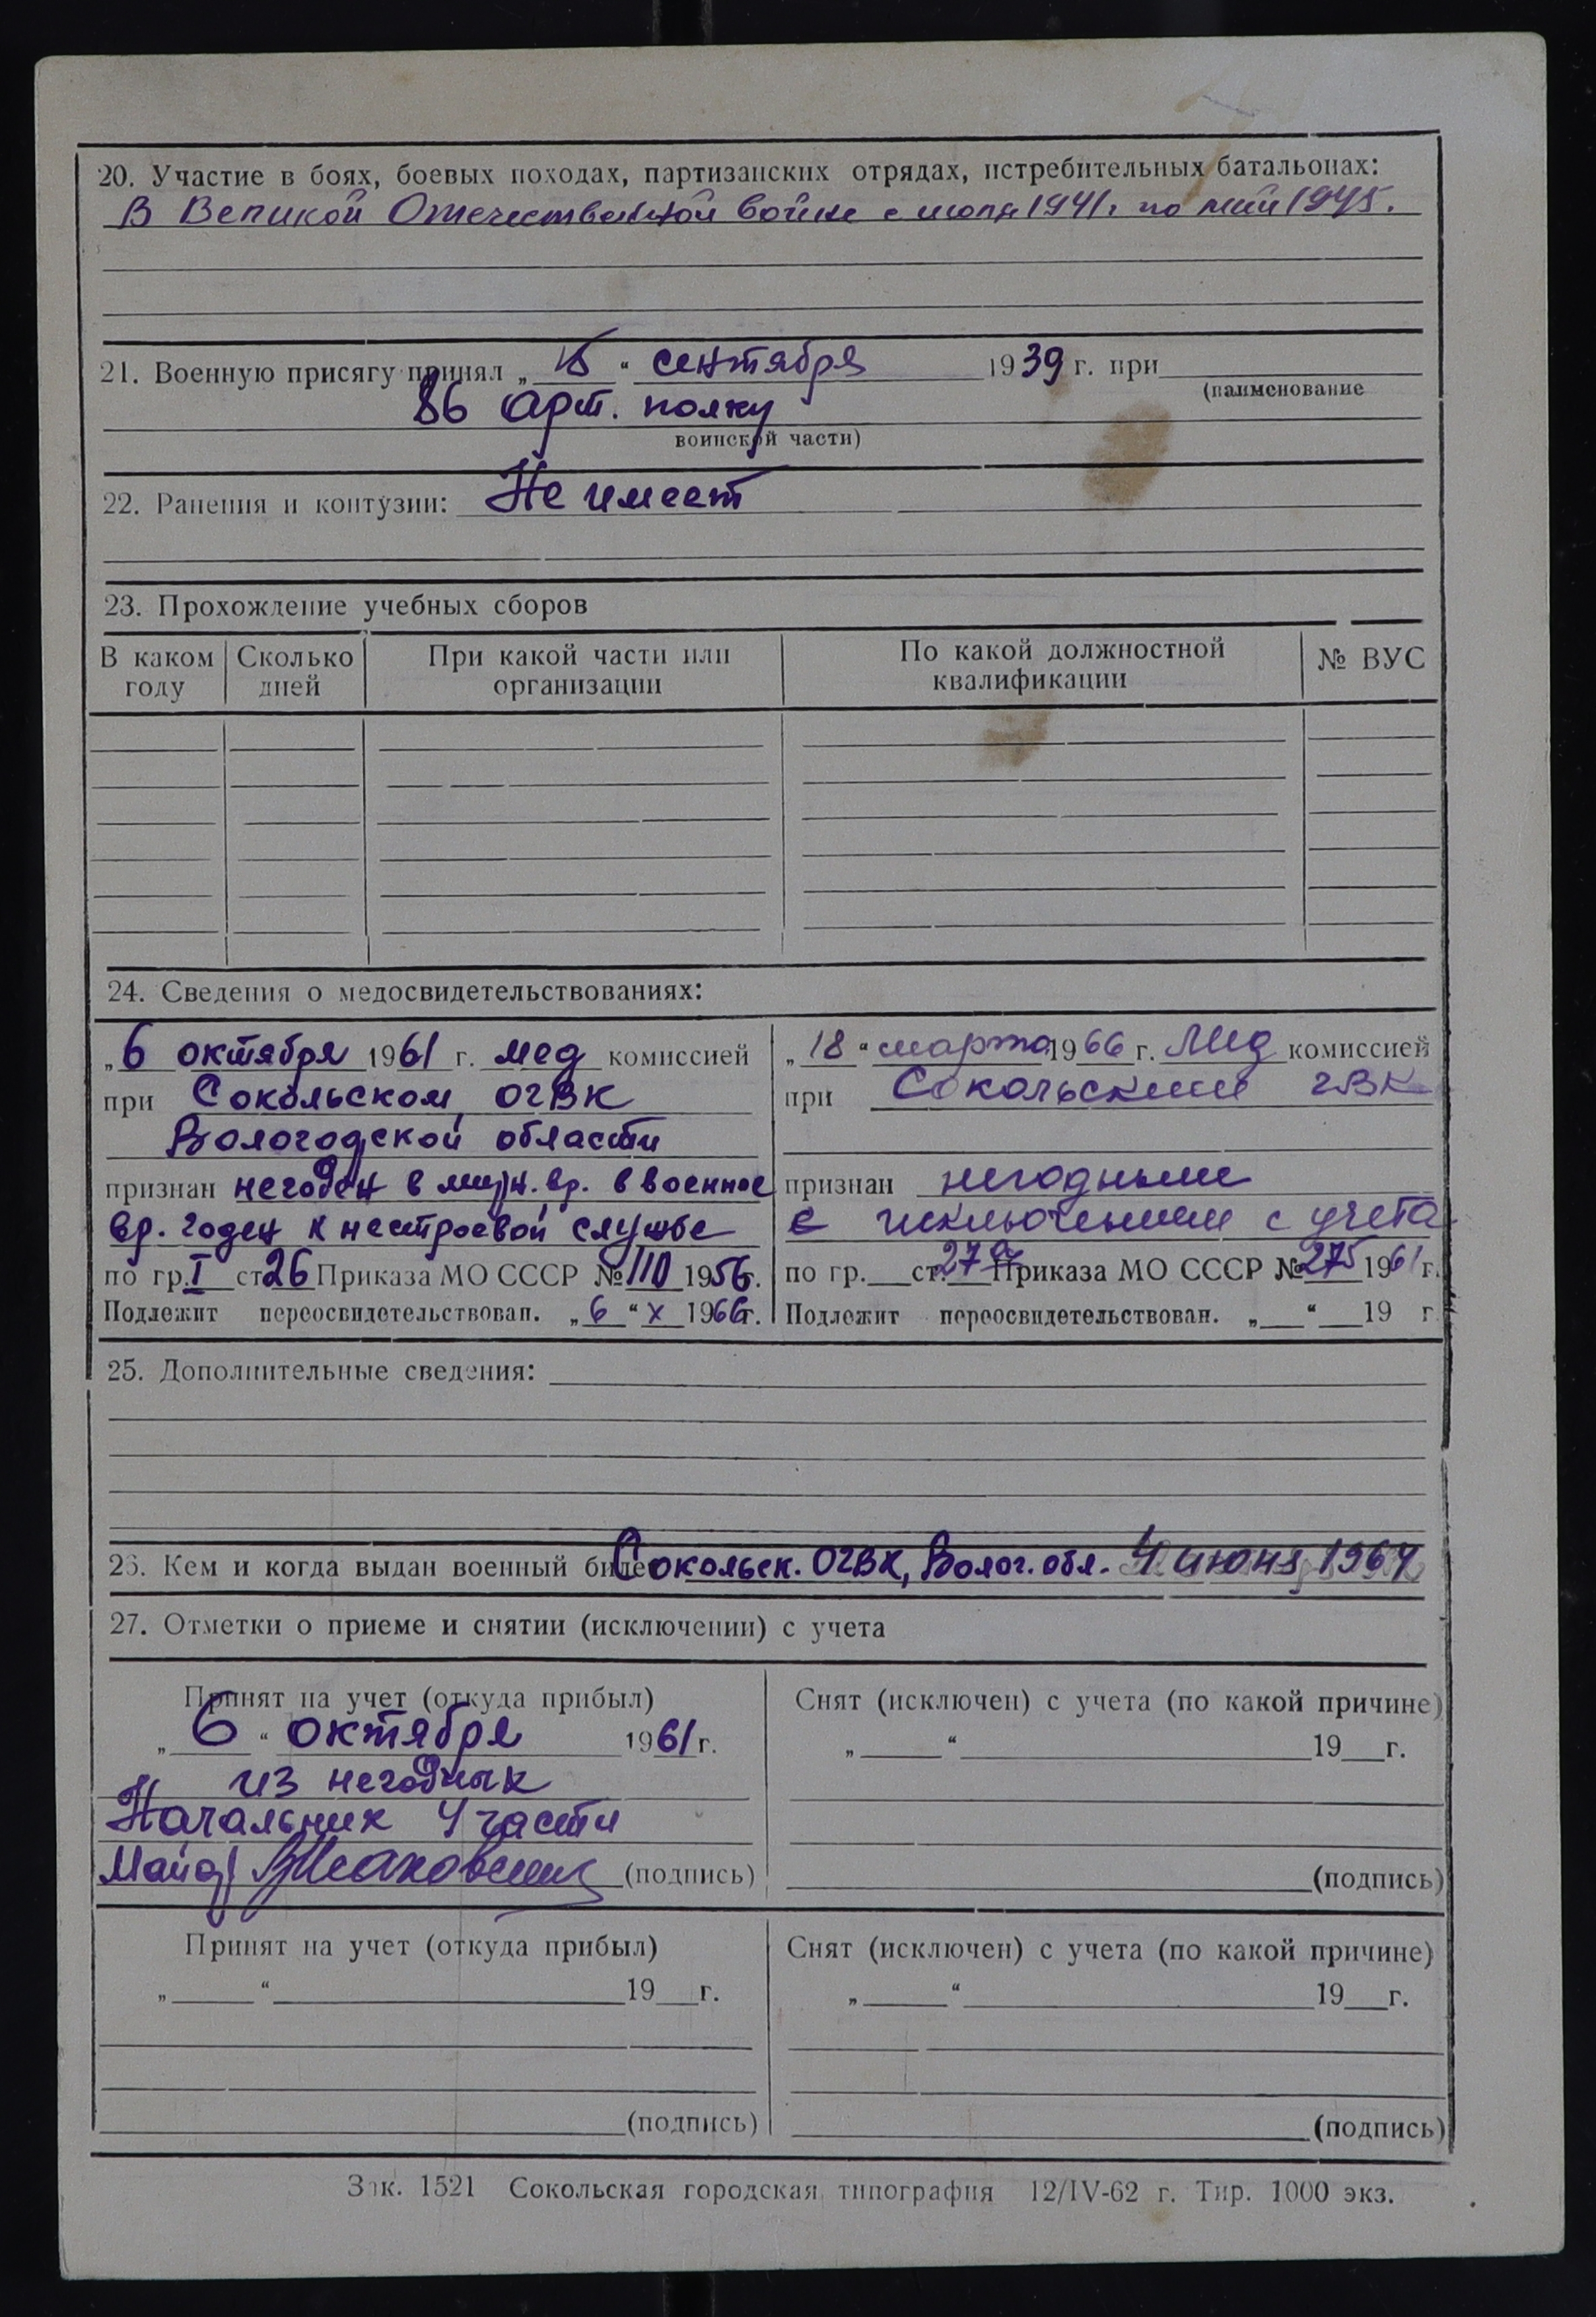 20. Участие в боях, боевых походах, партизанских отрядах, истребительных батальонах:
В Великой Отечественной войне с июля 1941г по май 1945.
21. Военную присягу принял „ 15 “ сентября 1939 г. при
(наименование
86 арт. полку
воинской части)
22. Ранения и контузии: Не имеет
23. Прохождение учебных сборов
В каком году | Сколько дней | При какой части или организации | По какой должностной квалификации | № ВУС
24. Сведения о медосвидетельствованиях:
„ 6 октября 1961 г. мед комиссией
при Сокольском ОГВК
Вологодской области
признан негоден в мирн. вр. в военное
вр. годен к нестроевой службе
по гр. I ст. 26 Приказа МО СССР № 110 1956 г.
Подлежит переосвидетельствован. „ 6 “ X 1966 г.
„ 18 “ марта 1966 г. Мед комиссией
при Сокольским ГВК
признан негодным
с исключением с учета
по гр. ст. 27 Приказа МО СССР № 275 1961 г.
Подлежит переосвидетельствован. „ “ 19 г.
25. Дополнительные сведения:
26. Кем и когда выдан военный билет Сокольск. ОГВК, Волог. обл. 4 июня 1964
27. Отметки о приеме и снятии (исключении) с учета
Принят на учет (откуда прибыл)
„ 6 “ октября 1961 г.
из негодных
Начальник 4 части
Майор
(подпись)
Снят (исключен) с учета (по какой причине)
„ “ 19 г.
(подпись)
Принят на учет (откуда прибыл)
„ “ 19 г.
(подпись)
Снят (исключен) с учета (по какой причине)
„ “ 19 г.
(подпись)
Зак. 1521 Сокольская городская типография 12/IV-62 г. Тир. 1000 экз.